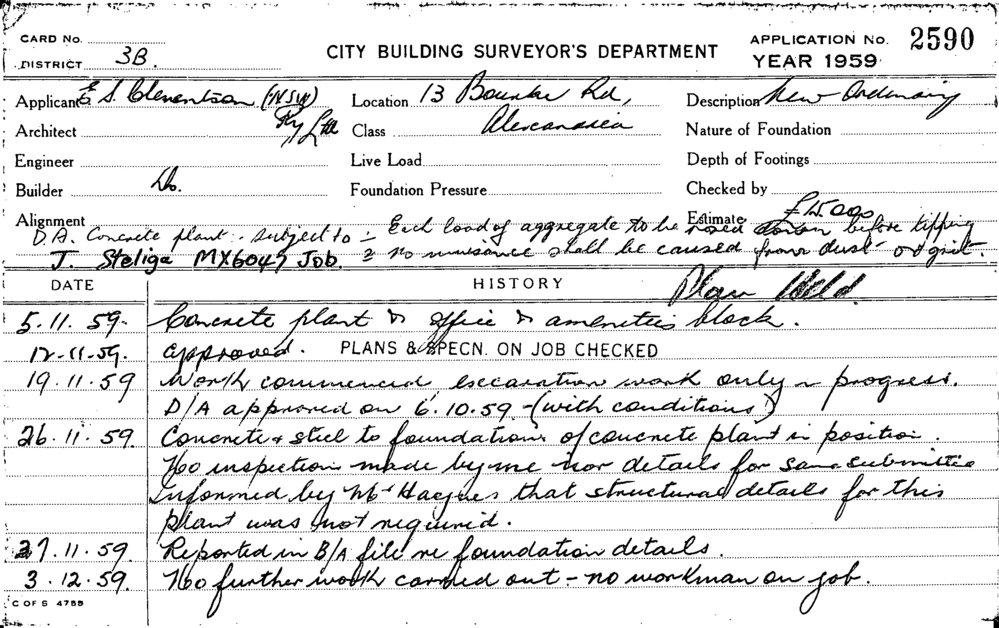 CARD No.
DISTRICT 3B.
CITY BUILDING SURVEYOR'S DEPARTMENT
APPLICATION No. 2590
YEAR 1959
Applicant E S. Clementson (NSW) Pty Ltd
Location 13 Bourke Rd,
Alexandria
Description New Ordinary
Architect
Class
Nature of Foundation
Engineer
Live Load
Depth of Footings
Builder Do.
Foundation Pressure
Checked by
Alignment
Estimate £15,000
D.A. Concrete plant. subject to :- Each load of aggregate to be down before tipping
J. Steliga MX6047 Job. & no nuisance shall be caused from dust or grit.
DATE
HISTORY
Plan Held.
5.11.59. Concrete plant & office & amenities block.
12.11.59. approved. PLANS & SPECN. ON JOB CHECKED
19.11.59 Work commenced excavation work only in progress.
D/A approved on 6.10.59 - (with conditions)
26.11.59. Concrete & steel to foundations of concrete plant in position.
No inspection made by me nor details for same submitted
Informed by Mr that structural details for this
plant was not required.
27.11.59. Reported in B/A file re foundation details.
3.12.59. No further work carried out - no workman on job.
C OF S 4755